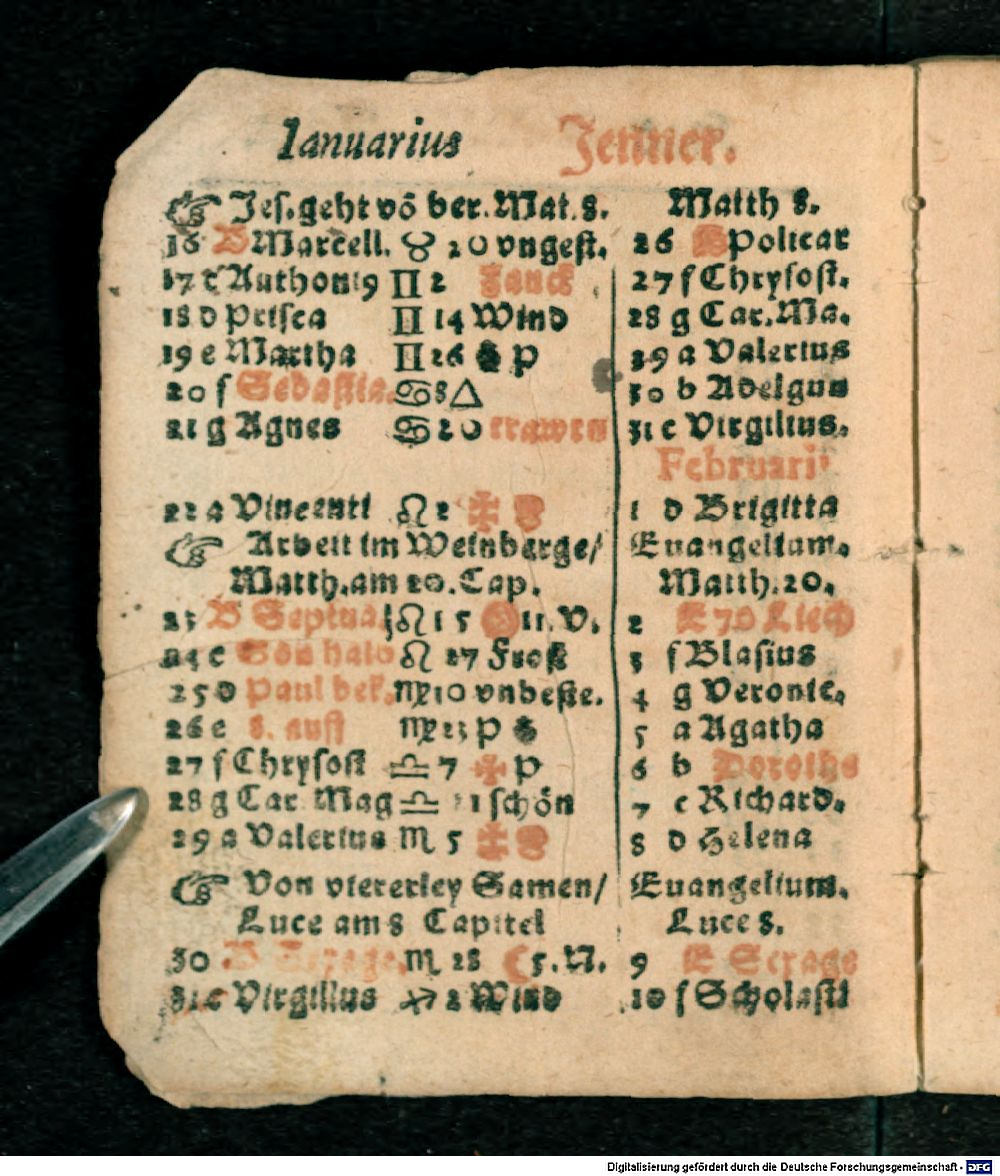 Ianuarius Jenner.
☞ Jes. geht vō ber. Mat. 8. Matth 8.
16 B Marcell. ♉ 20 vngest. 26 Policar
17 c Anthoni9 ♊ 2 Zanck 27 f Chrysost.
18 d Prisca ♊ 14 Wind 28 g Car. Ma.
19 e Martha ♊ 26 P 29 a Valerius
20 f Sebastia. ♋ 8 △ 30 b Adelgun
21 g Agnes ♋ 20 31 c Virgilius.
Februarii
22 a Vincenti ♌ 2 ✠ 1 d Brigitta
☞ Arbeit im Weinberge/ Euangelium.
Matth. am 20. Cap. Matth. 20.
23 B Septua. ♌ 15 11. V. 2 E 70 Liech
24 c halb ♌ 27 Frost 3 f Blasius
25 d Paul bek. ♍ 10 vnbeste. 4 g Veronic.
26 e 8. ausf ♍ 23 P 5 a Agatha
27 f Chrysost ♎ 7 ✠ P 6 b Dorothe
28 g Car Mag ♎ 21 schön 7 c Richard.
29 a Valerius ♏ 5 ✠ 8 d Helena
☞ Von viererley Samen/ Euangelium.
Luce am 8 Capitel Luce 8.
30 B ♏ 18 ☾ 5. N. 9 E Sexage
31 c Virgilius ♐ 2 Wind 10 f Scholasti
Digitalisierung gefördert durch die Deutsche Forschungsgemeinschaft - DFG